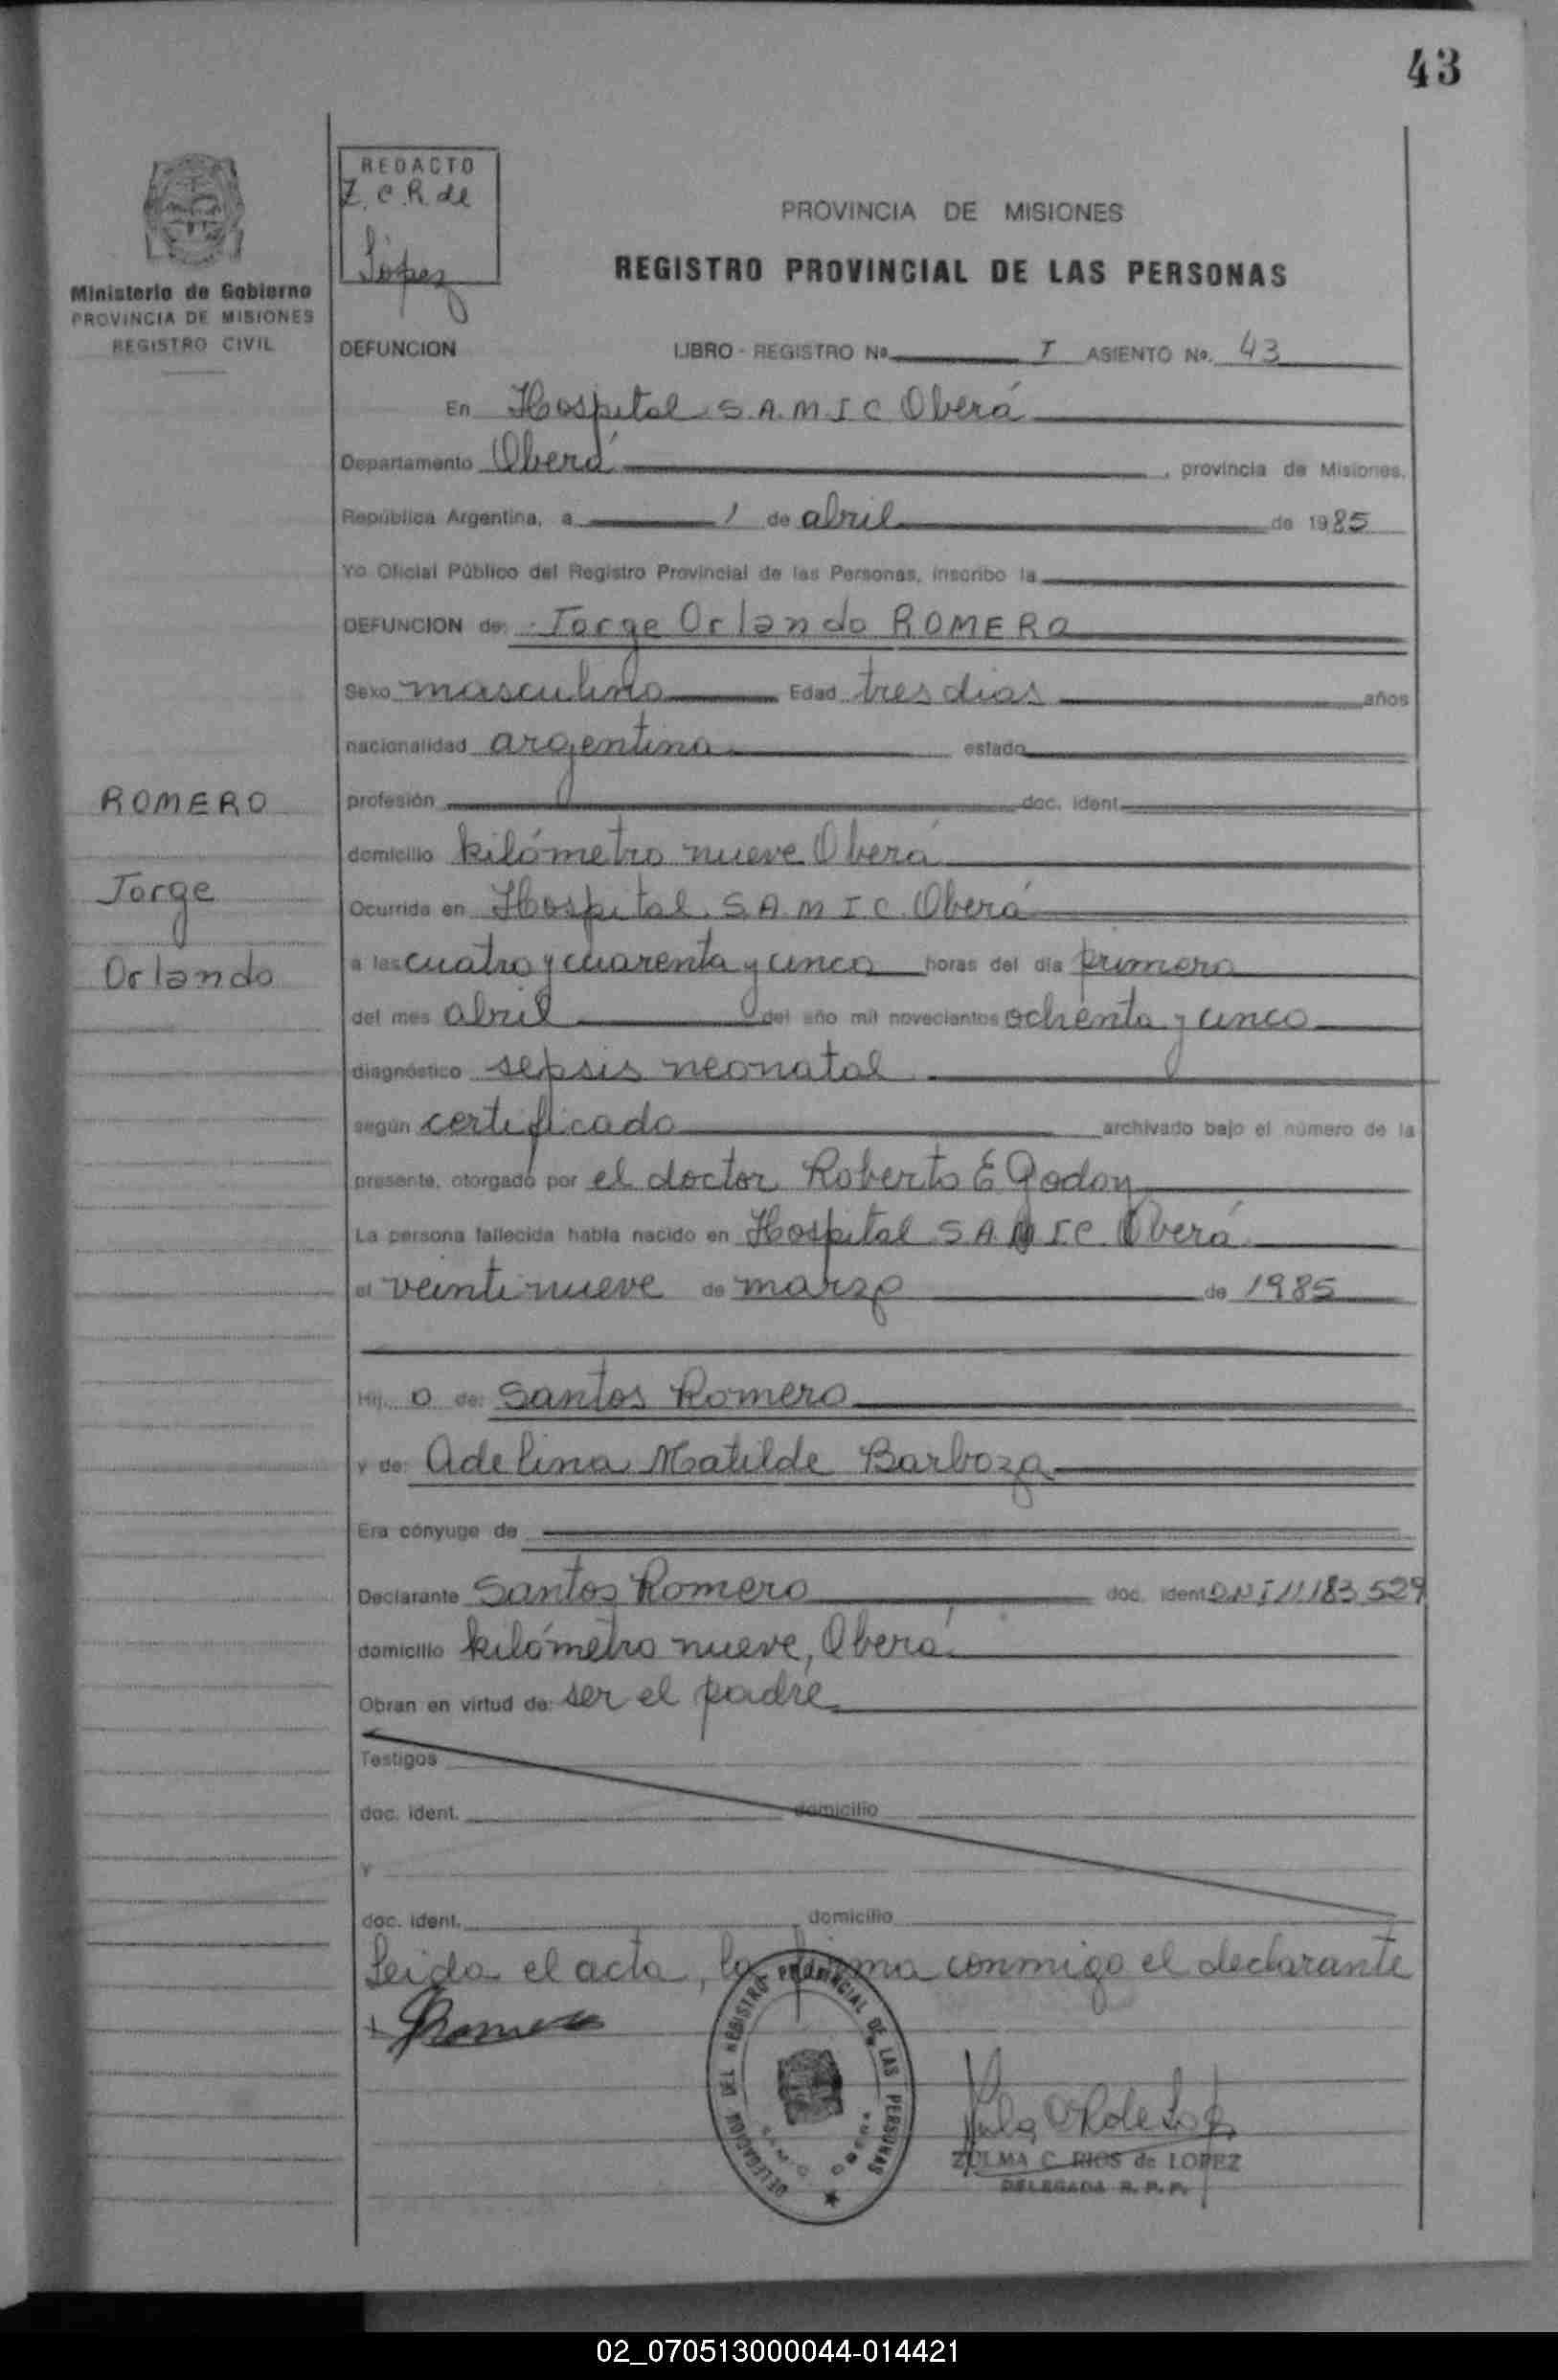 43
REDACTO
Z. C. R. de
López
PROVINCIA DE MISIONES
REGISTRO PROVINCIAL DE LAS PERSONAS
Ministerio de Gobierno
PROVINCIA DE MISIONES
REGISTRO CIVIL
DEFUNCION LIBRO - REGISTRO Nº I ASIENTO Nº. 43
En Hospital S.A.M.I C Oberá
Departamento Oberá, provincia de Misiones.
República Argentina, a 1 de abril de 1985
Yo Oficial Público del Registro Provincial de las Personas, inscribo la
DEFUNCION de: Jorge Orlando ROMERO
Sexo masculino Edad tres dias años
nacionalidad argentina estado
ROMERO
Jorge
Orlando
profesión doc. ident.
domicilio kilómetro nueve Oberá
Ocurrida en Hospital S.A.M I C. Oberá
a las cuatro y cuarenta y cinco horas del día primero
del mes abril del año mil novecientos ochenta y cinco
diagnóstico sepsis neonatal
según certificado archivado bajo el número de la
presente, otorgado por el doctor Roberto E Godoy
La persona fallecida había nacido en Hospital S A M I C. Oberá
el veintinueve de marzo de 1985
Hij o de: Santos Romero
y de: Adelina Matilde Barboza
Era cónyuge de
Declarante Santos Romero doc. ident D N I 11.183.529
domicilio kilómetro nueve, Oberá
Obran en virtud de: ser el padre
Testigos
doc. ident. domicilio
y
doc. ident. domicilio
Leida el acta, la firma conmigo el declarante
Romero
DELEGACION DEL REGISTRO PROVINCIAL DE LAS PERSONAS
ZULMA C. RIOS de LOPEZ
DELEGADA R. P. P.
02_070513000044-014421